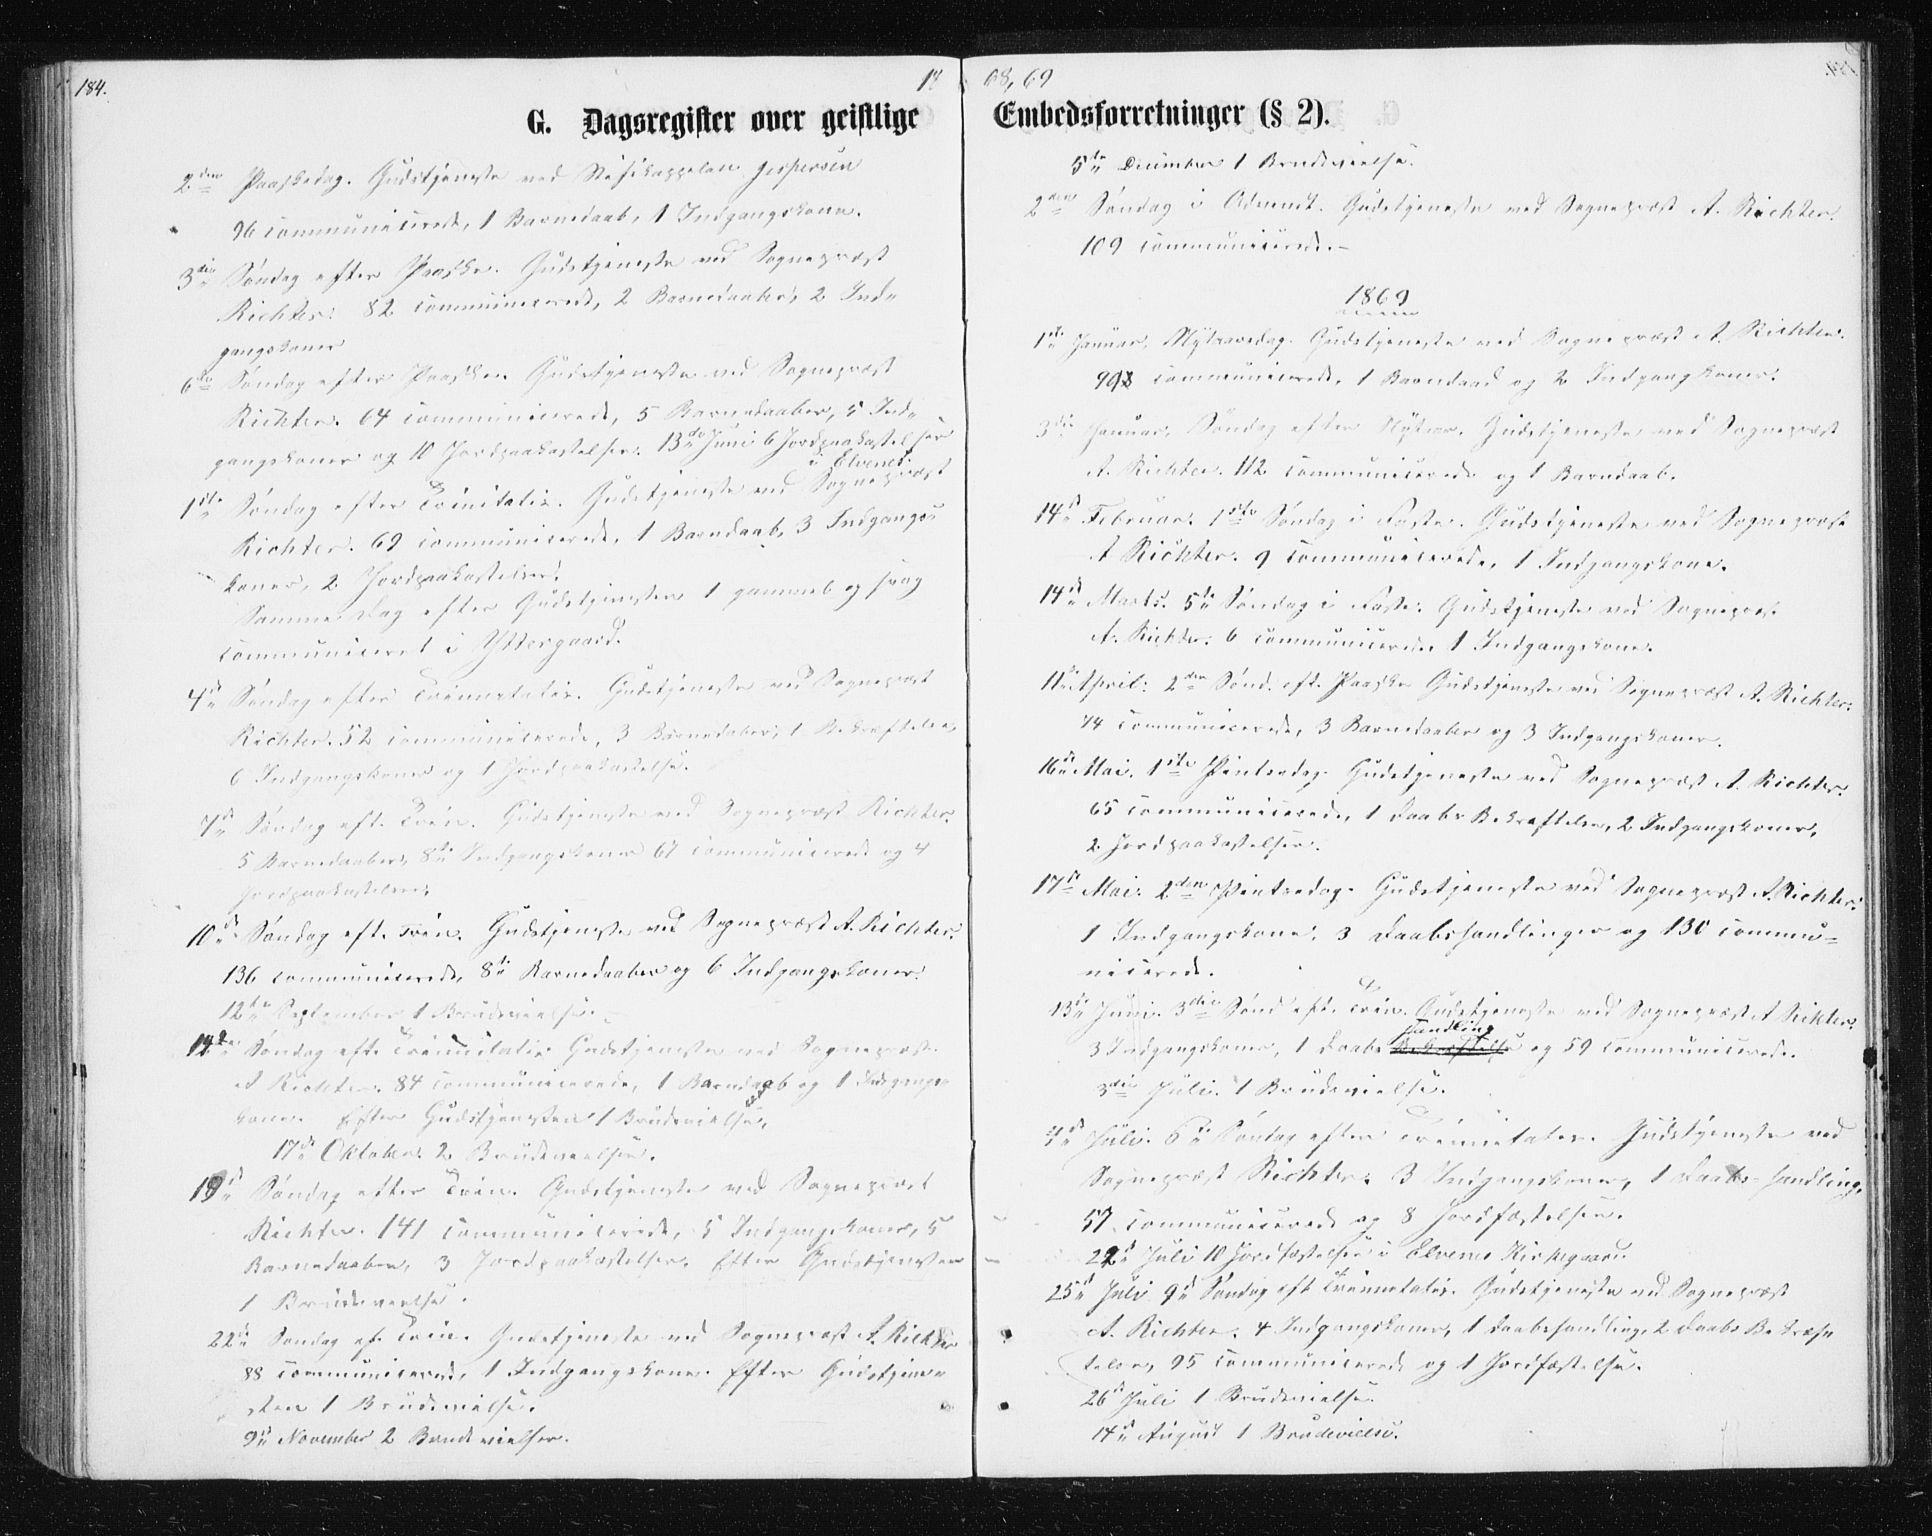 184.
18
G. Dagsregister over geistlige
2den Paaskedag. Gudstjeneste ved Stiftskappelan Jespersen
96 communicerede, 1 Barnedaab, 1 Indgangskone.
3die Søndag efter Paaske. Gudstjeneste ved Sognepræst
Richter. 82 communicerede, 2 Barnedaaber, 2 Ind-
gangskoner
6te Søndag efter Paaske. Gudstjeneste ved Sognepræst
Richter. 64 communicerede, 5 Barnedaaber, 5 Ind-
gangskoner og 10 Jordpaakastelser. 13de Juni 6 Jordpaakastelser
i Elvenes.
1ste Søndag efter Trinitatis. Gudstjeneste ved Sognepræst
Richter. 69 communicerede, 1 Barndaab, 3 Indgangs-
koner, 2 Jordpaakastelser.
Samme Dag efter Gudstjenesten 1 gammel og svag
communiceret i Yttergaard.
4de Søndag efter Trinnetatis. Gudstjeneste ved Sognepræst
Richter. 52 communicerede, 3 Barnedaber, 1 Bekræftelse,
6 Indgangskoner og 1 Jordpaakastelse.
7de Søndag eft. Trin. Gudstjeneste ved Sognepræst Richter.
5 Barnedaaber, 8te Indgangskoner 67 communicerede og 4
Jordpaakastelser.
10de Søndag eft. Trin. Gudstjeneste ved Sognepræst A. Richter.
136 communicerede, 8te Barnedaaber og 6 Indgangskoner.
12te September 1 Brudevielse.
14de Søndag eft. Trinnitatis Gudstjeneste ved Sognepræst
A Richter. 84 communicerede, 1 Barndaab og 1 Indgangs-
kone. Efter Gudstjenesten 1 Brudevielse.
17de Oktober 2 Brudevielser.
19de Søndag efter Trin. Gudstjeneste ved Sognepræst
Richter. 141 communicerede, 5 Indgangskoner, 5
Barnedaaber, 3 Jordpaakastelser. Efter Gudstjenesten
1 Brudevielse.
22de Søndag ef. Trin. Gudstjeneste ved Sognepræst A. Richter
88 communicerede, 1 Indgangskone. Efter Gudstjene-
sten 1 Brudevielse.
9de November 2 Brudevielser.
68, 69
Embedsforretninger (§ 2).
5te December 1 Brudevielse.
2den Søndag i Advendt. Gudstjeneste ved Sognepræst A. Richter.
109 communicerede.
1869
1ste Januar, Nytaarsdag. Gudstjeneste ved Sognepræst A. Richter.
communicerede, 1 Barndaab og 2 Indgangkoner.
3die Januar, Søndag efter Nytaar. Gudstjeneste ved Sognepræst
A. Richter. 112 communicerede og 1 Barndaab.
14de Februar. 1ste Søndag i Faste. Gudstjeneste ved Sognepræst
A Richter. 9 communicerede, 1 Indgangskone.
14de Marts. 5te Søndag i Faste. Gudstjeneste ved Sognepræst
A. Richter. 6 communicerede, 1 Indgangskone.
11te April. 2den Sønd. eft. Paaske Gudstjeneste ved Sognepræst A. Richter.
74 communicerede, 3 Barnedaaber og 3 Indgangskoner.
16de Mai. 1ste Pintsedag. Gudstjeneste ved Sognepræst A. Richter.
65 communicerede, 1 Daabs Bekræftelse, 2 Indgangskoner,
2 Jordpaakastelser.
17de Mai. 2den Pintsedag. Gudstjeneste ved Sognepræst A. Richter.
1 Indgangskone, 3 Daabshandlinger og 130 commu-
nicerede.
13de Juni. 3die Sønd eft. Trin. Gudstjeneste ved Sognepræst A Richter.
handling
3 Indgangskoner, 1 Daabs Bekræftelse og 59 communicerede.
3die Juli. 1 Brudevielse.
4de Juli. 6te Søndag efter Trinnetates. Gudstjeneste ved
Sognepræst Richter. 3 Indgangskoner, 1 Daabs-handling,
57 communicerede og 8 Jordfæstelser.
22de Juli 10 Jordfæstelser i Elvenes Kirkegaard.
25de Juli 9de Søndag eft Trinnetatis. Gudstjeneste ved Sognepræst
A. Richter. 4 Indgangskoner, 1 Daabshandling, 2 Daabs Bekræf-
telser, 95 communicerede og 1 Jordfæstelse.
26de Juli 1 Brudevielse.
14de August 1 Brudevielse.